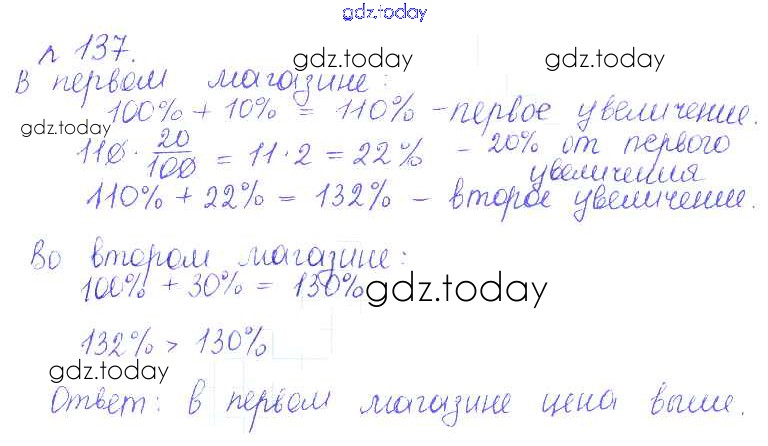 gdz.today
№ 137.
gdz.today
В первом магазине:
100% + 10% = 110% - первое увеличение.
gdz.today
110 · 20/100 = 11 · 2 = 22% - 20% от первого
увеличения
110% + 22% = 132% - второе увеличение.
Во втором магазине:
100% + 30% = 130%
gdz.today
132% > 130%
gdz.today
Ответ: в первом магазине цена выше.